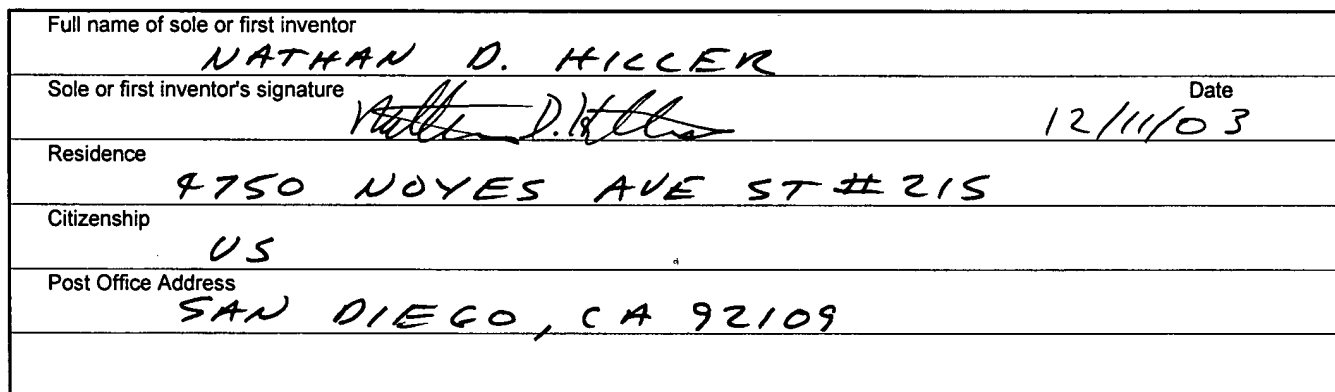 Full name of sole or first inventor
NATHAN D. HILLER
Sole or first inventor's signature Date
Nathan D. Hiller 12/11/03
Residence
4750 NOYES AVE ST # 215
Citizenship
US
Post Office Address
SAN DIEGO, CA 92109